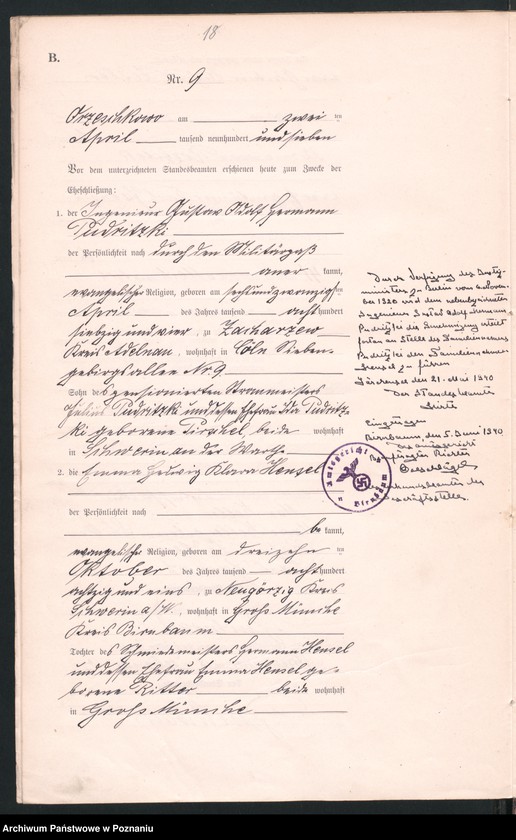 18
B.
Nr. 9
Orzeschkowo am zwei ten
April tausend neunhundert und sieben
Vor dem unterzeichneten Standesbeamten erschienen heute zum Zwecke der
Eheschließung:
1. der Ingenieur Gustav Adolf Hermann
Pudritzki
der Persönlichkeit nach durch den Militärpaß
aner kannt,
evangelischer Religion, geboren am sechsundzwanzigsten
April des Jahres tausend acht hundert
siebzig und vier, zu Zacharzew
Kreis Adelnau, wohnhaft in Cöln Sieben-
gebirgsallee Nr. 9
Sohn des pensionierten Strommeisters
Julius Pudritzki und dessen Ehefrau Ida Pudritz-
ki geborene beide wohnhaft
in Schwerin an der Warthe
2. die Emma Hedwig Klara Hensel
der Persönlichkeit nach
be kannt,
evangelischer Religion, geboren am dreizehn ten
Oktober des Jahres tausend acht hundert
achtzig und eins, zu Neugörzig Kreis
Schwerin a/W. wohnhaft in Groß Münche
Kreis Birnbaum
Tochter des Schmiedemeisters Hermann Hensel
und dessen Ehefrau Emma Hensel ge-
borene Ritter beide wohnhaft
in Groß Münche
Durch Verfügung des Justiz-
ministers z. Berlin vom
ber 1920 wird dem nebenbezeichneten
Ingenieur Gustav Adolf Hermann
Pudritzki die Genehmigung erteilt
fortan an Stelle des Familiennamens
Pudritzki den Familiennamen
z. führen
den 21. Mai 1940
Der Standesbeamte
Eingetragen
Birnbaum, den 5. Juni 1940
Das Amtsgericht
Richter
Urkundsbeamter der
Geschäftsstelle.
Amtsgericht
Birnbaum
Archiwum Państwowe w Poznaniu